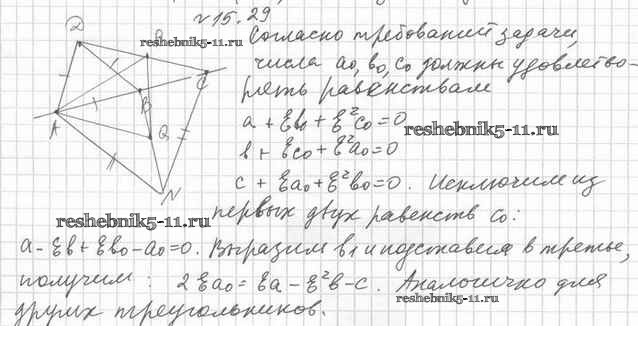 № 15.29
D
B
C
B
A
Q
N
Согласно требований задачи,
числа a₀, b₀, c₀ должны удовлетво-
рять равенствам
a + εb₀ + ε²c₀ = 0
b + εc₀ + ε²a₀ = 0
c + εa₀ + ε²b₀ = 0. Исключим из
первых двух равенств c₀:
a - εb + εb₀ - a₀ = 0. Выразим b₁ и подставим в третье,
получим: 2εa₀ = εa - ε²b - c. Аналогично для
других треугольников.
reshebnik5-11.ru
reshebnik5-11.ru
reshebnik5-11.ru
reshebnik5-11.ru